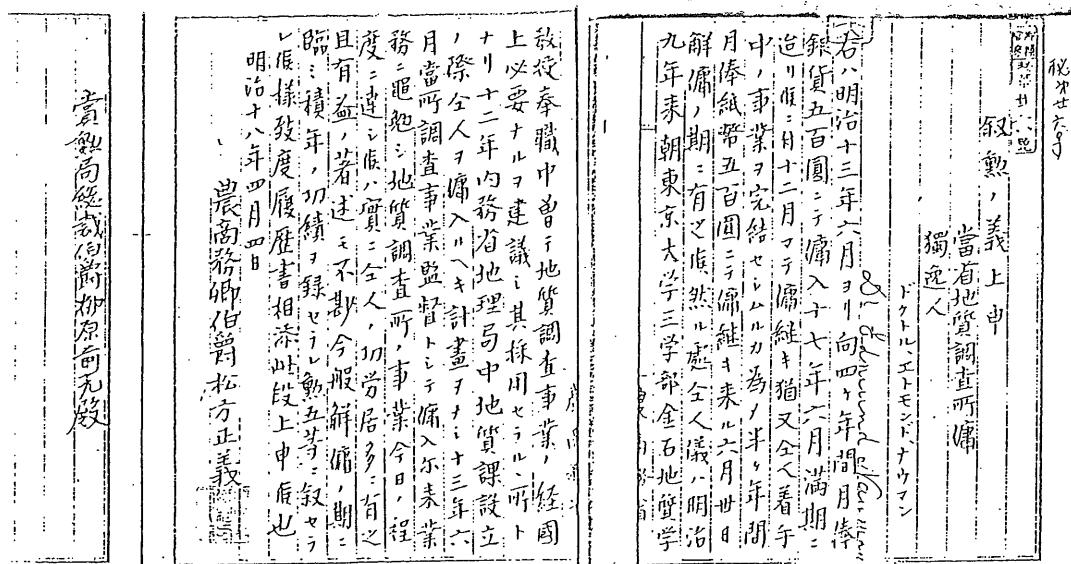 秘第廿六号
叙勲ノ義上申
當省地質調査所傭
獨逸人
ドクトル、エトモンド、ナウマン
Dr. Edmund Naumann
右ハ明治十三年六月ヨリ向四ヶ年間月俸
銀貨五百圓ニテ傭入十七年六月満期ニ
迨リ候ニ付十二月マテ傭継キ猶又仝人着手
中ノ事業ヲ完結セシムルカ為メ半ヶ年間
月俸紙幣五百圓ニテ傭継キ来ル六月卅日
解傭ノ期ニ有之候然ル處仝人儀ハ明治
九年来朝東京大学三学部金石地質学
教授奉職中曽テ地質調査事業ノ経國
上必要ナルヲ建議シ其採用セラルヽ所ト
ナリ十二年内務省地理局中地質課設立
ノ際仝人ヲ傭入ルヘキ計畫ヲナシ十三年六
月當所調査事業監督トシテ傭入尓来業
務ニ黽勉シ地質調査所ノ事業今日ノ程
度ニ達シ候ハ實ニ仝人ノ功労居多ニ有之
且有益ノ著述モ不尠今般解傭ノ期ニ
臨ミ積年ノ功績ヲ録セラレ勲五等ニ叙セラ
レ候様致度履歴書相添此段上申候也
明治十八年四月四日
農商務卿伯爵松方正義
賞勲局総裁伯爵柳原前光殿